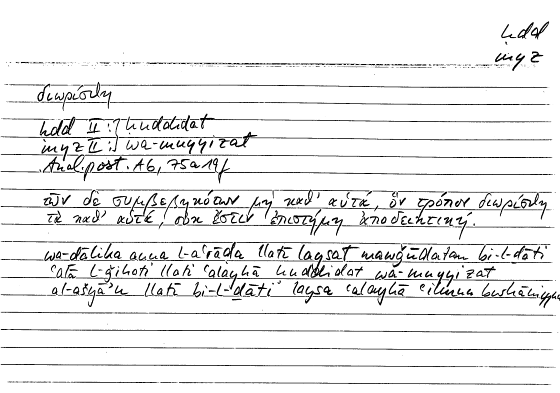 ḥdd
myz
διωρίσθη
ḥdd II : } ḥuddidat
myz II : } wa-muyyizat
Anal. post. A6, 75a19f
τῶν δὲ συμβεβηκότων μὴ καθ' αὑτά, ὃν τρόπον διωρίσθη
τὰ καθ' αὑτά, οὐκ ἔστιν ἐπιστήμη ἀποδεικτική.
wa-ḏālika anna l-aʿrāḍa llatī laysat mawǧūdatan bi-l-ḏāti
ʿalā l-ǧihati llatī ʿalayhā ḥuddidat wa-muyyizat
al-ašyāʾu llatī bi-l-ḏāti laysa ʿalayhā ʿilmun